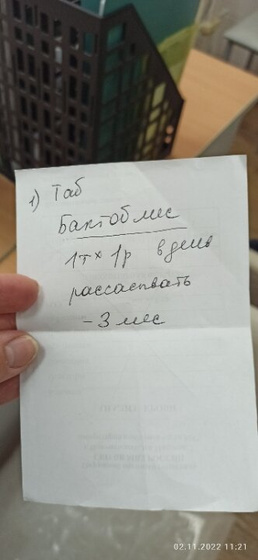 1) Таб
Бактоблис
1т × 1р в день
рассасывать
– 3 мес
02.11.2022 11:21